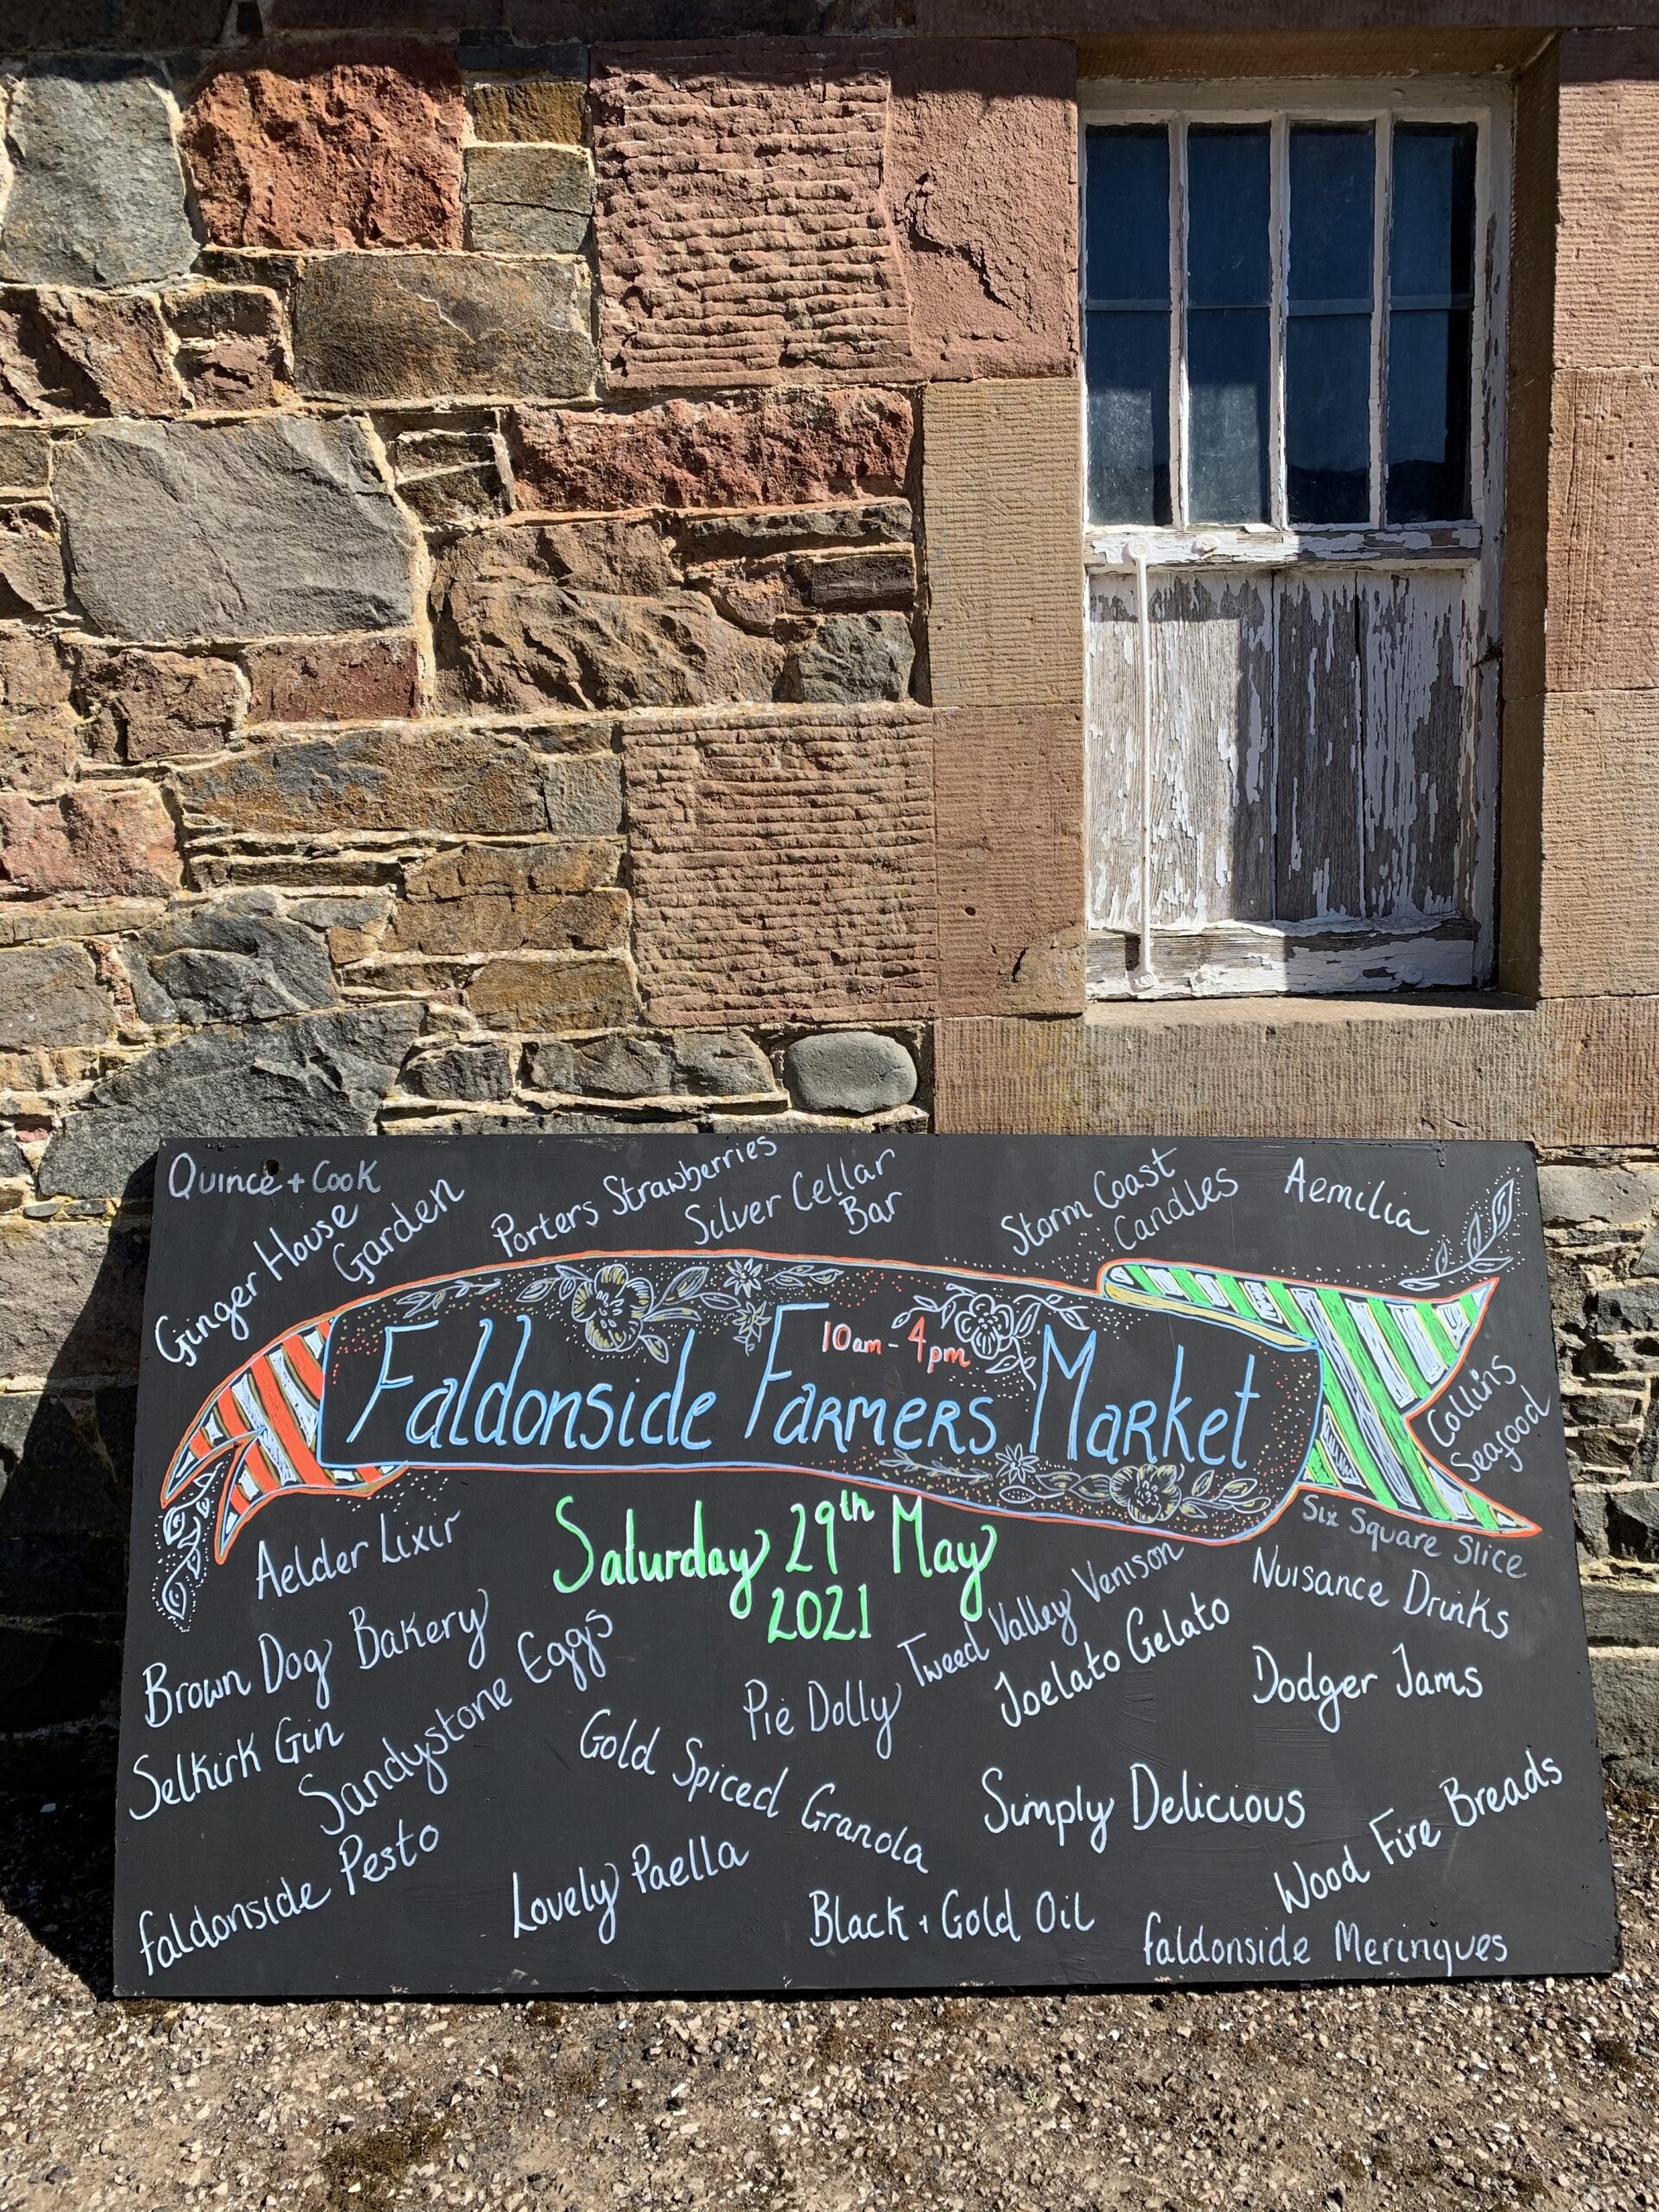 Quince + Cook
Ginger House
Garden
Porters Strawberries
Silver Cellar
Bar
Storm Coast
Candles
Aemilia
10am - 4pm
Faldonside Farmers Market
Collins
Seafood
Saturday 29th May
2021
Six Square Slice
Aelder Lixir
Nuisance Drinks
Tweed Valley Venison
Brown Dog Bakery
Joelato Gelato
Dodger Jams
Pie Dolly
Selkirk Gin
Sandystone Eggs
Gold Spiced Granola
Simply Delicious
Wood Fire Breads
Faldonside Pesto
Lovely Paella
Black + Gold Oil
Faldonside Meringues